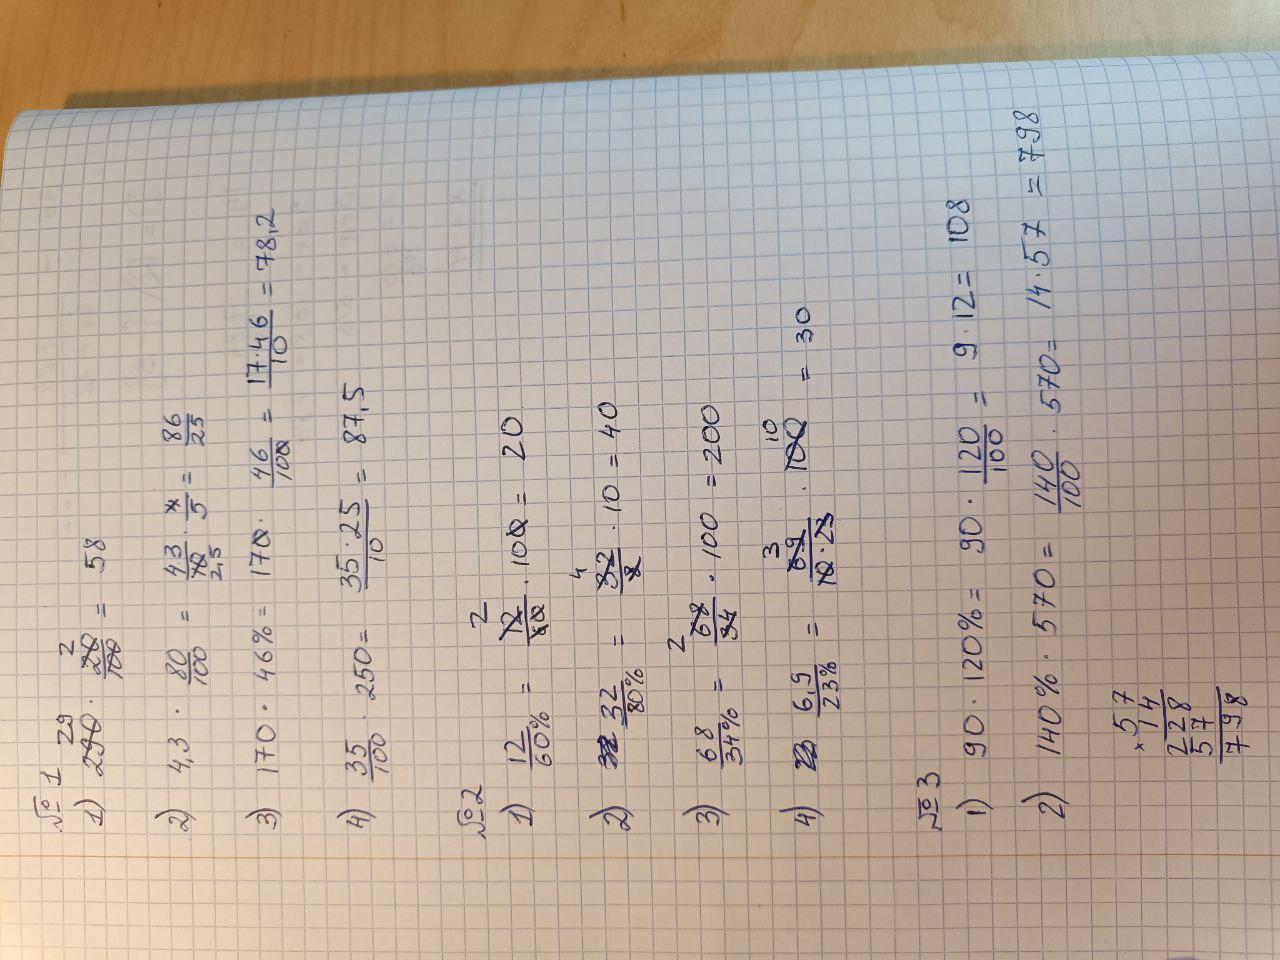 № 1
1) 290 29 · 20/100 2 = 58
2) 4,3 · 80/100 = 43/10 2,5 · 4/5 = 86/25
3) 170 · 46% = 170 · 46/100 = 17·46/10 = 78,2
4) 35/100 · 250 = 35·25/10 = 87,5
№ 2
1) 12/60% = 2 12/60 · 100 = 20
2) 32/80% = 4 32/8 · 10 = 40
3) 68/34% = 2 68/34 · 100 = 200
4) 6,9/23% = 3 69/10·23 · 100 10 = 30
№ 3
1) 90 · 120% = 90 · 120/100 = 9 · 12 = 108
2) 140% · 570 = 140/100 · 570 = 14·57 = 798
× 57
14
228
57
798